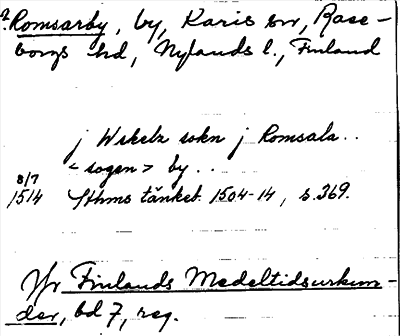 ? Romsarby, by, Karis sn, Rase-
borgs hd, Nylands l., Finland
j Wekelx sokn j Romsala..
<sogen> by..
8/7
1514 Sthms tänkeb. 1504-14, s. 369.
Jfr Finlands Medeltidsurkun-
der, bd 7, reg.